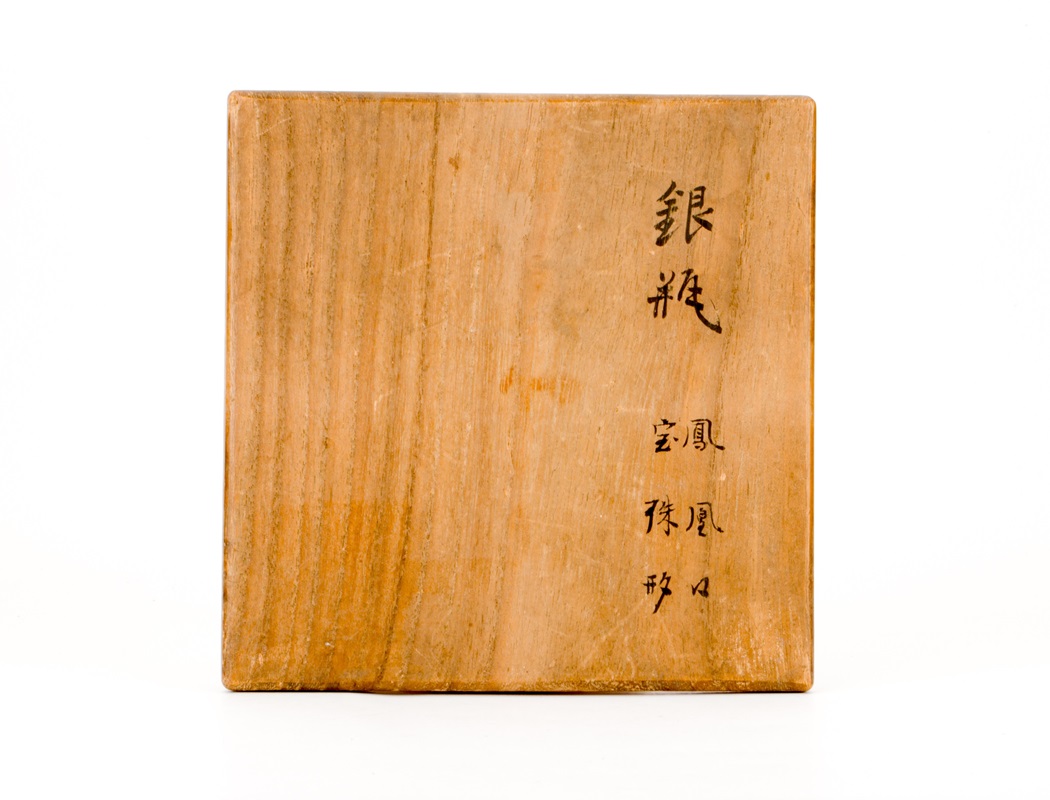 銀瓶
鳳凰口
宝珠形